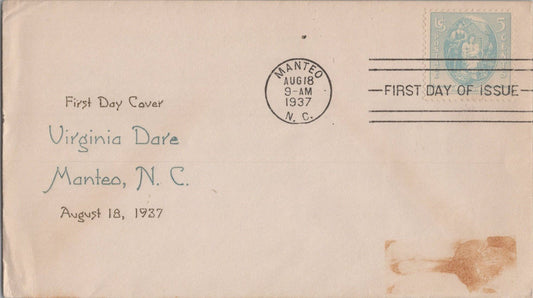 US 5
MANTEO
AUG 18
9-AM
1937
N. C.
FIRST DAY OF ISSUE
First Day Cover
Virginia Dare
Manteo, N. C.
August 18, 1937